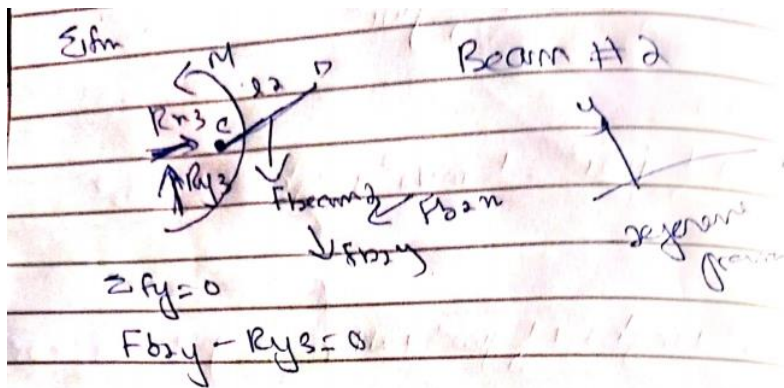 Σfm
M
Beam # 2
l2
D
Rx3
C
y
Ry3
Fbeam2
Fb2x
Fb2y
Σfy = 0
Fb2y - Ry3 = 0